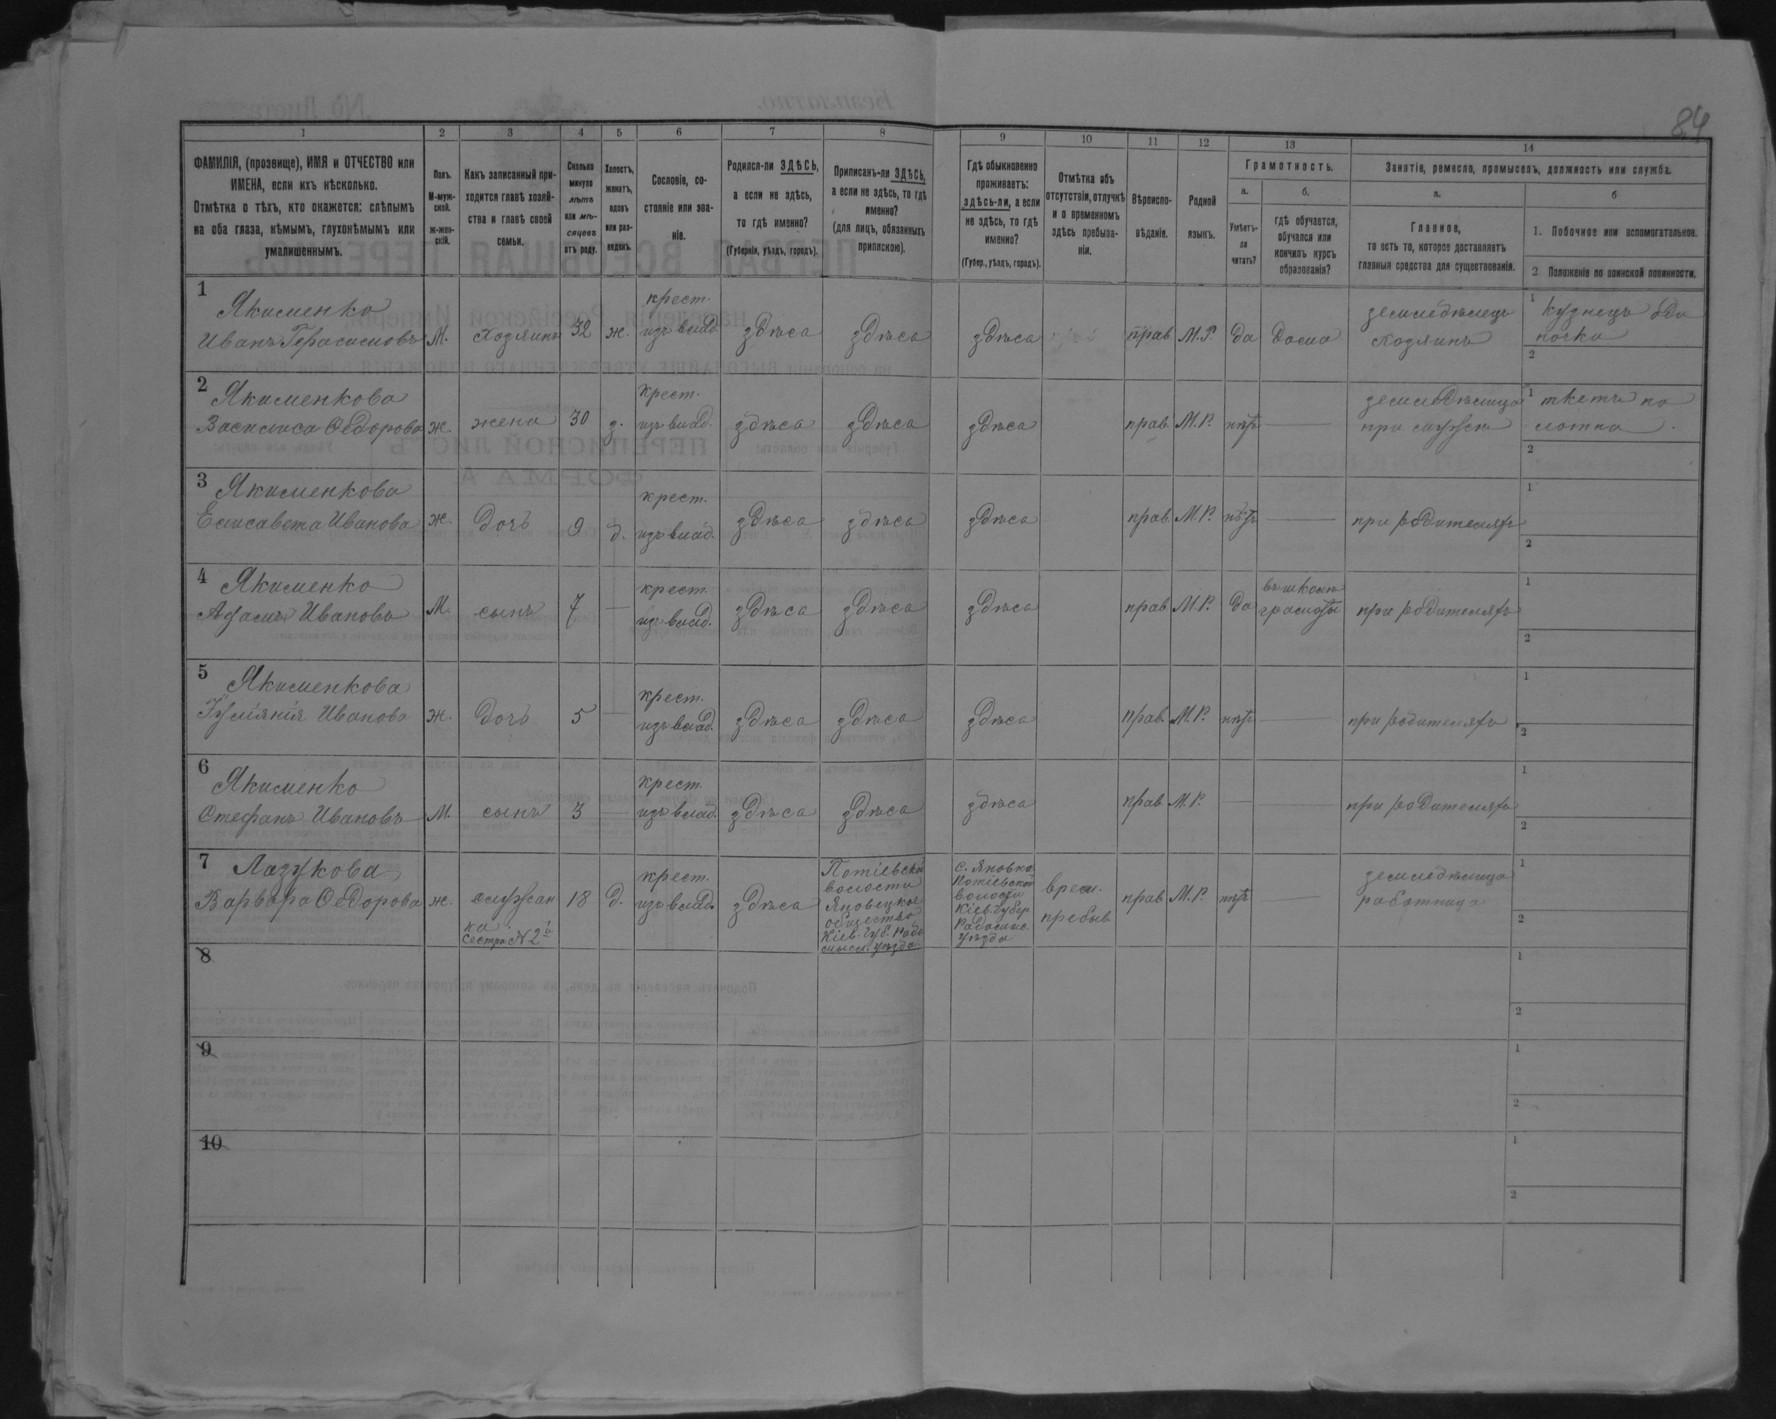 84
1 2 3 4 5 6 7 8 9 10 11 12 13 14
ФАМИЛІЯ, (прозвище), ИМЯ и ОТЧЕСТВО или
ИМЕНА, если ихъ нѣсколько.
Отмѣтка о тѣхъ, кто окажется: слѣпымъ
на оба глаза, нѣмымъ, глухонѣмымъ или
умалишеннымъ.
Полъ.
М-муж-
ской.
ж-жен-
скій.
Какъ записанный при-
ходится главѣ хозяй-
ства и главѣ своей
семьи.
Сколько
минуло
лѣтъ
или мѣ-
сяцевъ
отъ роду.
Холостъ,
женатъ,
вдовъ
или раз-
веденъ.
Сословіе, со-
стояніе или зва-
ніе.
Родился-ли ЗДѢСЬ,
а если не здѣсь,
то гдѣ именно?
(Губернія, уѣздъ, городъ).
Приписанъ-ли ЗДѢСЬ,
а если не здѣсь, то гдѣ
именно?
(для лицъ, обязанныхъ
припискою).
Гдѣ обыкновенно
проживаетъ:
здѣсь-ли, а если
не здѣсь, то гдѣ
именно?
(Губер., уѣздъ, городъ).
Отмѣтка объ
отсутствіи, отлучкѣ
и о временномъ
здѣсь пребыва-
ніи.
Вѣроиспо-
вѣданіе.
Родной
языкъ.
Грамотность.
а.
Умѣетъ-
ли
читать?
б.
гдѣ обучается,
обучался или
кончилъ курсъ
образованія?
Занятіе, ремесло, промыселъ, должность или служба.
а.
Главное,
то есть то, которое доставляетъ
главныя средства для существованія.
б
1. Побочное или вспомогательное.
2 Положеніе по воинской повинности.
1 Якименко
Иванъ Герасимовъ
М.
Хозяинъ
32
ж.
крест.
изъ влад.
здѣса
здѣса
здѣса
прав
М.Р.
да
дома
земледѣлецъ
хозяинъ
1
2
2 Якименкова
Василиса Ѳедорова
ж.
жена
30
з.
крест.
изъ влад.
здѣса
здѣса
здѣса
прав
М.Р.
нѣтъ
земледѣлица
при мужѣ
1 ткетъ по
лотна.
2
3 Якименкова
Елисавета Иванова
ж.
дочь
9
д.
крест.
изъ влад.
здѣса
здѣса
здѣса
прав.
М.Р.
нѣтъ
при родителяхъ
1
2
4 Якименко
Адамъ Ивановъ
М.
сынъ
7
крест.
изъ влад.
здѣса
здѣса
здѣса
прав
М.Р.
да
въ школѣ
грамоты
при родителяхъ
1
2
5 Якименкова
Іуліянія Иванова
ж.
дочь
5
крест.
изъ влад.
здѣса
здѣса
здѣса
прав.
М.Р.
нѣтъ
при родителяхъ
1
2
6 Якименко
Стефанъ Ивановъ
М.
сынъ
3
крест.
изъ влад.
здѣса
здѣса
здѣса
прав
М.Р.
при родителяхъ
1
2
7 Лазукова
Варвара Ѳедорова
ж.
служан
ка
сестра N 2й
18
д.
крест.
изъ влад.
здѣса
Потіевской
волости
Яновецкое
общество
Кіев. Губ. Радо
мысл. уѣзда
с. Яновка
Потіевской
волости
Кіев. Губер
Радомыс.
уѣзда
врем.
пребыв
прав
М.Р.
нѣтъ
земледѣлица
работница
1
2
8
1
2
9
1
2
10
1
2